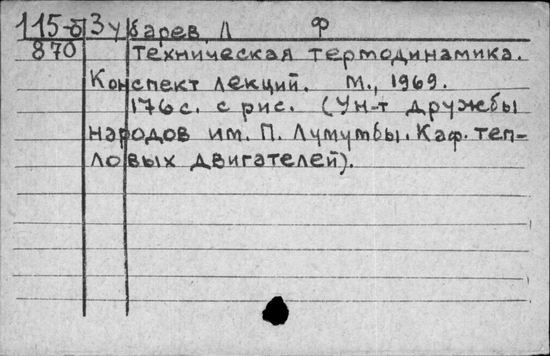 115-б Зубарев Л Ф
870 Техническая термодинамика.
Конспект лекций. М., 1969.
176 с. с рис. (Ун-т дружбы
народов им. П. Лумумбы. Каф. теп-
ловых двигателей).